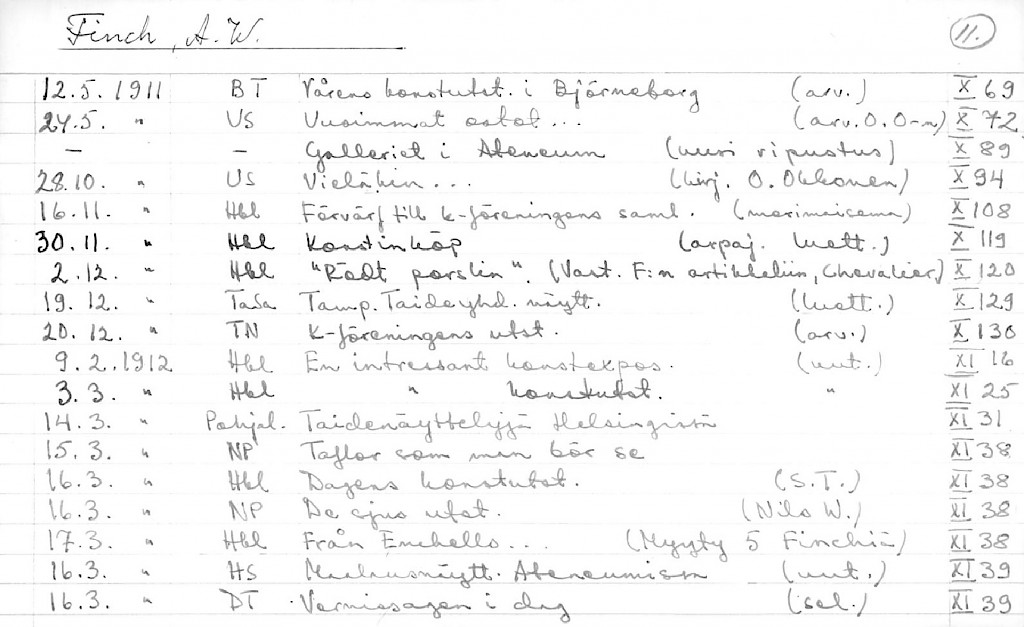 Finch, A.W. 11.
12.5.1911 BT Vårens konstutst. i Björneborg (arv.) X 69
24.5. " US Vuoimmat ostot... (arv. O.O-n) X 72
— — Galleriet i Ateneum (uusi ripustus) X 89
28.10. " US Vieläkin... (kirj. O. Okkonen) X 94
16.11. " Hbl Förvärf till k-föreningens saml. (merimaisema) X 108
30.11. " Hbl Konstinköp (arpaj. luett.) X 119
2.12. " Hbl "Rödt porslin". (Vast. F:n artikkeliin, Chevalier) X 120
19.12. " TaSa Tamp. Taideyhd. näytt. (luett.) X 129
20.12. " TN K-föreningens utst. (arv.) X 130
9.2.1912 Hbl En intressant konstexpos. (uut.) XI 16
3.3. " Hbl " konstutst. " XI 25
14.3. " Pohjal. Taidenäyttelyjä Helsingissä XI 31
15.3. " NP Taflor som man bör se XI 38
16.3. " Hbl Dagens konstutst. (S.T.) XI 38
16.3. " NP De sjus utst. (Nils W.) XI 38
17.3. " Hbl Från Enckells... (Myyty 5 Finchiä) XI 38
16.3. " HS Maalausnäytt. Ateneumissa (uut.) XI 39
16.3. " DT Vernissagen i dag (sel.) XI 39